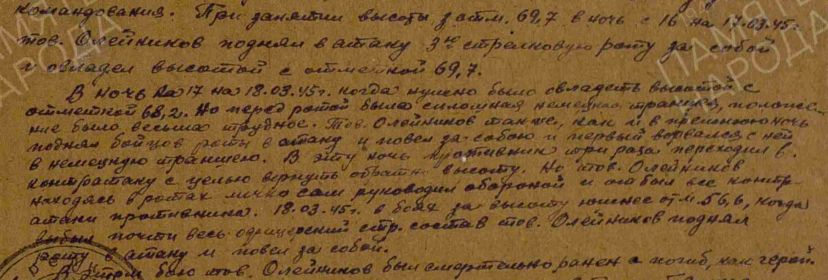 командования. При занятии высоты с отм. 69,7 в ночь с 16 на 17.03.45г.
тов. Олейников поднял в атаку 3-ю стрелковую роту за собой
и овладел высотой с отметкой 69,7.
В ночь на 17 на 18.03.45г. когда нужно было овладеть высотой с
отметкой 68,2. Но перед ротой была сплошная немецкая траншея, положе-
ние было весьма трудное. Тов. Олейников также, как и в прошлую ночь
поднял бойцов роты в атаку и повел за собою и первый ворвался с ней
в немецкую траншею. В эту ночь противник три раза переходил в
контратаку с целью вернуть обратно высоту. Но тов. Олейников
находясь в ротах лично сам руководил обороной и отбил все контр-
атаки противника. 18.03.45г. в боях за высоту южнее отм. 56,6, когда
выбыл почти весь офицерский стр. состав тов. Олейников поднял
роту в атаку и повел за собой.
В этом бою тов. Олейников был смертельно ранен и погиб, как герой.
ПАМЯТЬ
НАРОДА
ПАМЯТЬ
НАРОДА